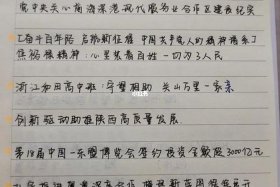 党中央关心前海深港现代服务业合作区建设纪实
【奋斗百年路 启航新征程 中国共产党人的精神谱系】
焦裕禄精神：心里装着百姓 一切为了人民
浙江和田高中班：守望相助 关山万里一家亲
小红书
创新驱动助推陕西高质量发展
第18届中国—东盟博览会签约投资金额超3000亿元